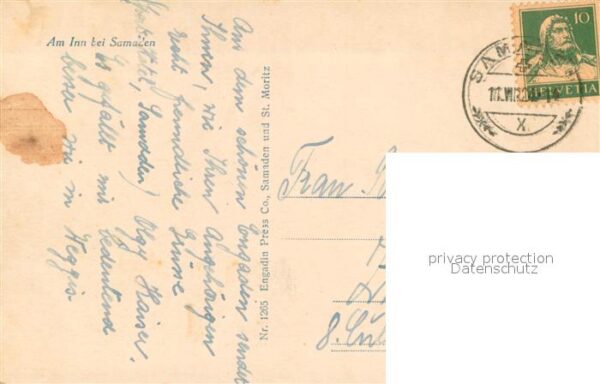 Am Inn bei Samaden
Aus dem schönen Engadin sendet
Ihnen, wie Ihren Angehörigen
recht freundliche Grüsse
Olgy Kaiser.
Samaden)
Es gefällt mir bedeutend
besser wie in Weggis
Nr. 1265 Engadin Press Co., Samaden und St. Moritz
Frau
8.
10
HELVETIA
SAM
X.
privacy protection
Datenschutz